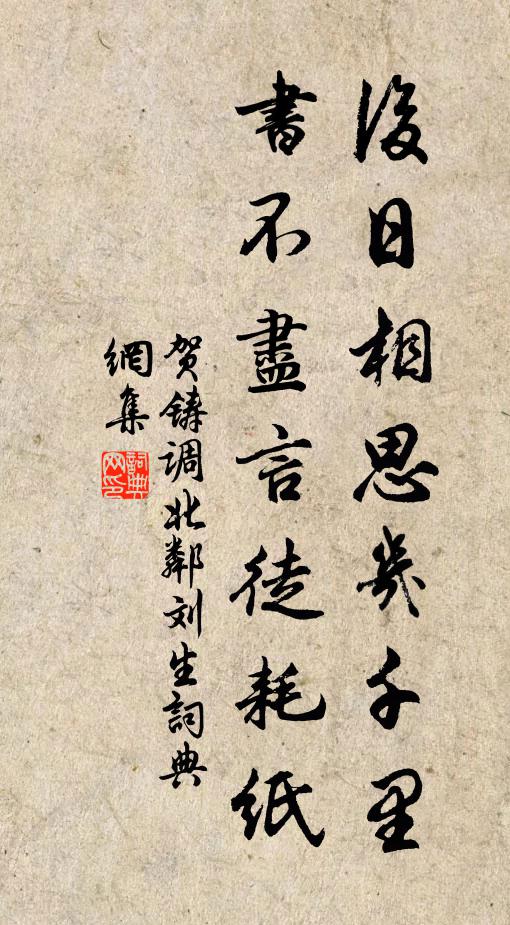 後日相思幾千里
書不盡言徒耗紙
贺鑄调北鄰刘生詞典
網集
詞典网印